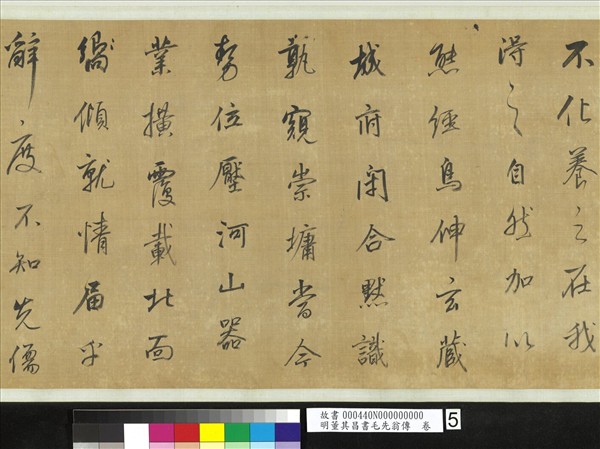 不化養之在我
得之自然加以
熊經鳥伸玄藏
城府閉合默識
孰窺崇墉當今
勢位壓河山器
業橫覆載北面
傾就情屆乎
辭度不知先儒
故書 000440N000000000
明董其昌書毛先翁傳 卷
5